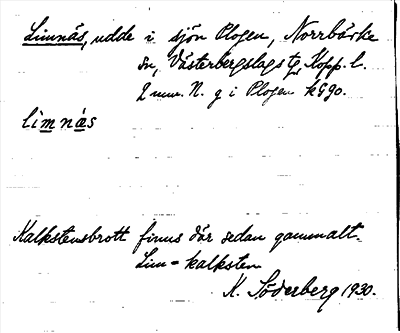 Limnäs, udde i sjön Plogen, Norrbärke
sn, Västerbergslags tg, Kopp. l.
2 mm. N. g i Plogen k G90.
limnäs
Kalkstensbrott finns där sedan gammalt.
Lim = kalksten
K. Söderberg 1930.